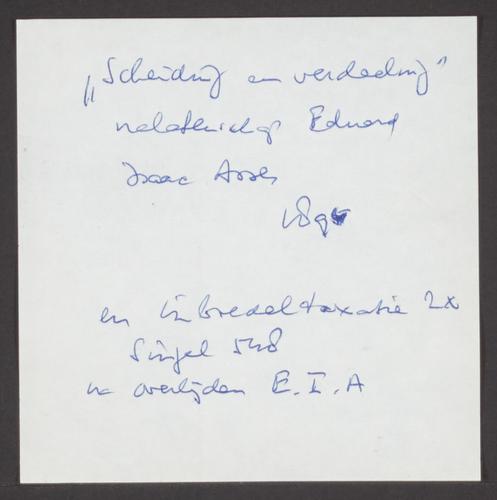 „Scheiding en verdeeling"
nalatenschap Eduard
Isaac Asser
189
en inboedeltaxatie 2x
Singel 548
na overlijden E.I.A